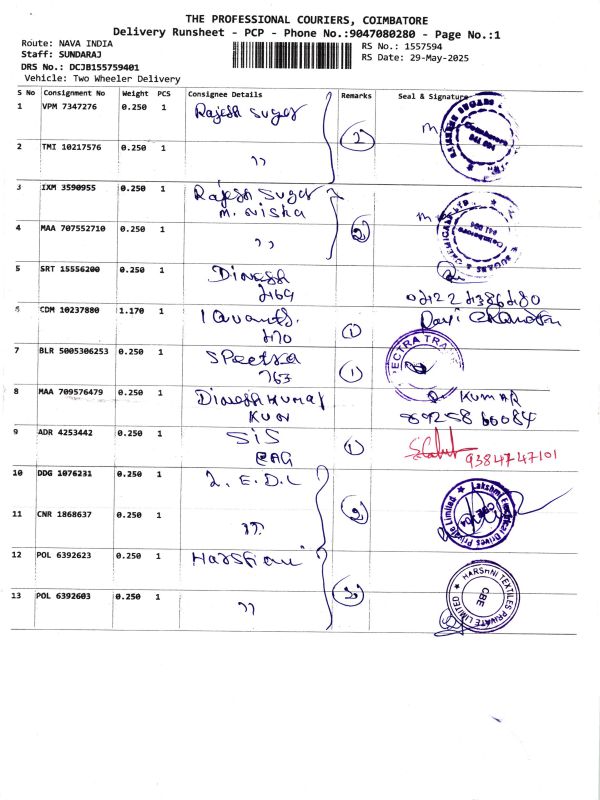 THE PROFESSIONAL COURIERS, COIMBATORE
Delivery Runsheet - PCP - Phone No.:9047080280 - Page No.:1
Route: NAVA INDIA
Staff: SUNDARAJ
RS No.: 1557594
DRS No.: DCJB155759401
RS Date: 29-May-2025
Vehicle: Two Wheeler Delivery
S No Consignment No Weight PCS Consignee Details Remarks Seal & Signature
1 VPM 7347276 0.250 1 Rajesh Sugar 2
2 TMI 10217576 0.250 1 ,,
Coimbatore
641 004
3 IXM 3590955 0.250 1 Rajesh Sugar
M. Nisha
4 MAA 707552710 0.250 1 ,, 2
SUGARS & CHEMICALS
Coimbatore
641 004
5 SRT 15556200 0.250 1 Dinesh
6 CDM 10237880 1.170 1 1
7 BLR 5005306253 0.250 1 Spectra
763 1
ECTRA TRA
8 MAA 709576479 0.250 1 Dinesh Kumar KUMAR
9 ADR 4253442 0.250 1 SIS 1
9384747101
10 DDG 1076231 0.250 1 L.E.D.L
11 CNR 1868637 0.250 1 ,, 2
Lakshmi Drives Private Limited
12 POL 6392623 0.250 1 Harshni
13 POL 6392603 0.250 1 ,, 2
HARSHNI TEXTILES PRIVATE LIMITED
CBE